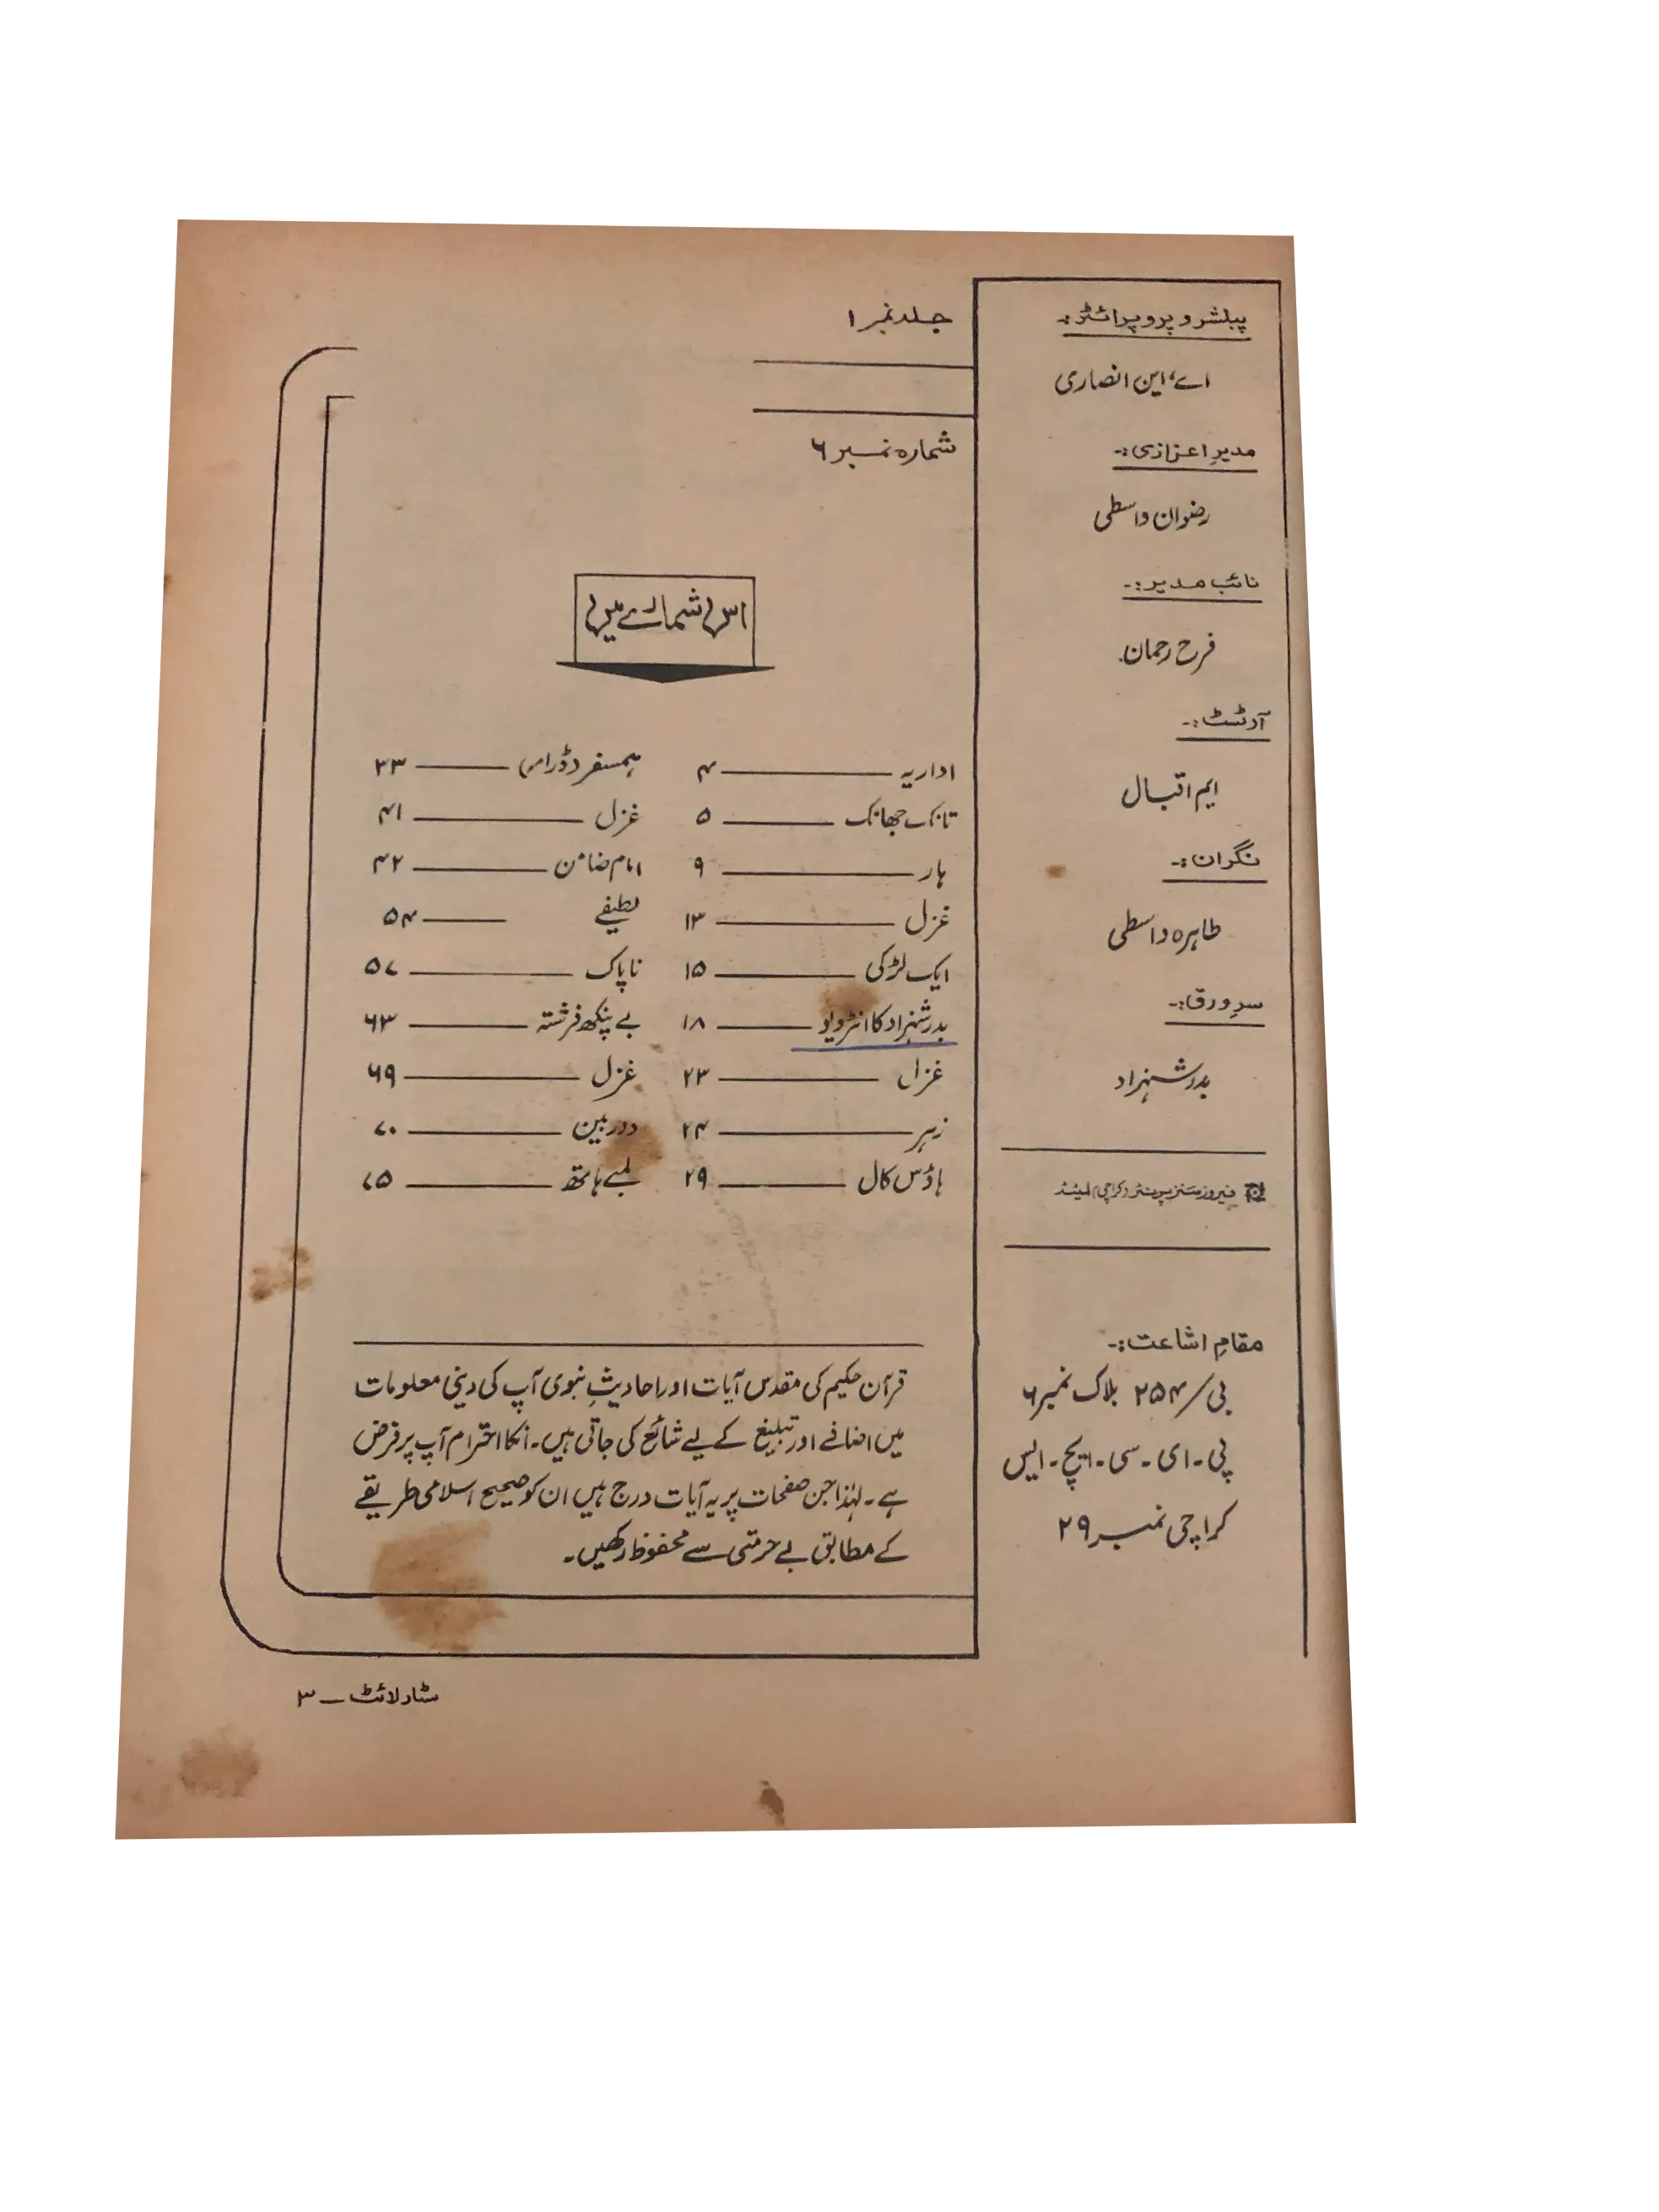 پبلشر و پروپرائٹر:-
اے، این انصاری
مدیر اعزازی:-
رضوان واسطی
نائب مدیر:-
فرح رحمان
آرٹسٹ:-
ایم اقبال
نگران:-
طاہرہ واسطی
سرورق:-
بدر شہزاد
فیروز سنز پرنٹر (کراچی) لمیٹڈ
مقامِ اشاعت:-
بی/۲۵۴ بلاک نمبر ۶
پی۔ای۔سی۔ایچ۔ایس
کراچی نمبر ۲۹
جلد نمبر ۱
شمارہ نمبر ۶
اس شمارے میں
اداریہ ۴
تانک جھانک ۵
ہار ۹
غزل ۱۳
ایک لڑکی ۱۵
بدر شہزاد کا انٹرویو ۱۸
غزل ۲۳
زہر ۲۴
ہاؤس کال ۲۹
ہمسفر (ڈرامہ) ۳۳
غزل ۴۱
امام ضامن ۴۲
لطیفے ۵۴
ناپاک ۵۷
بے پنکھ فرشتہ ۶۳
غزل ۶۹
دوربین ۷۰
لمبے ہاتھ ۷۵
قرآن حکیم کی مقدس آیات اور احادیثِ نبوی آپ کی دینی معلومات
میں اضافے اور تبلیغ کے لیے شائع کی جاتی ہیں۔ انکا احترام آپ پر فرض
ہے۔ لہٰذا جن صفحات پر یہ آیات درج ہیں ان کو صحیح اسلامی طریقے
کے مطابق بے حرمتی سے محفوظ رکھیں۔
سٹارلائٹ — ۳